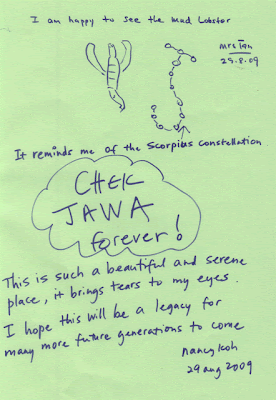 I am happy to see the Mud Lobster
Mrs Tan
29.8.09
It reminds me of the Scorpius constellation
CHEK
JAWA
forever!
This is such a beautiful and serene
place, it brings tears to my eyes.
I hope this will be a legacy for
many more future generations to come
nancy koh
29 aug 2009